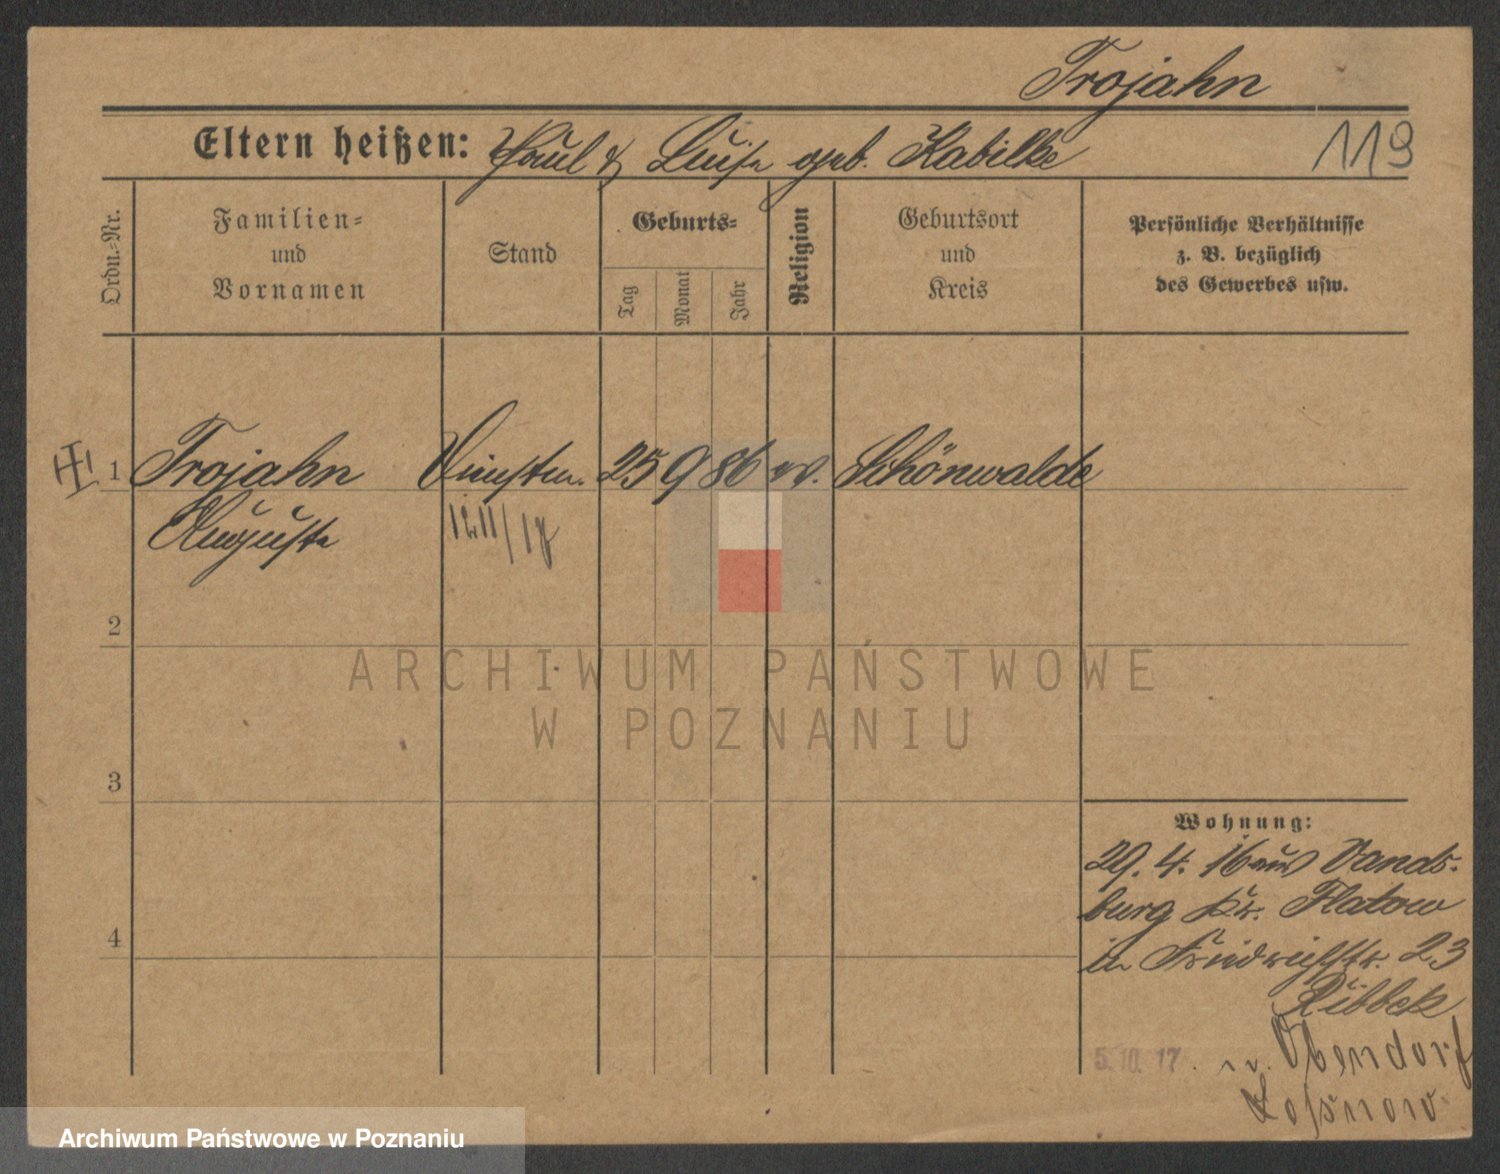 Trojahn
119
Eltern heißen: Paul & Luise geb. Kabilke
Ordn.-Nr.
Familien-
und
Vornamen
Stand
Geburts-
Tag
Monat
Jahr
Religion
Geburtsort
und
Kreis
Persönliche Verhältnisse
z. B. bezüglich
des Gewerbes usw.
1 Trojahn 25 9 86 ev. Schönwalde
Auguste
2
3
4
Wohnung:
29. 4. 16 aus Vands-
burg Kr. Flatow
in Friedrichstr. 23
Ribbek
5.10.17. n. Obendorf
ARCHIWUM PAŃSTWOWE
W POZNANIU
Archiwum Państwowe w Poznaniu